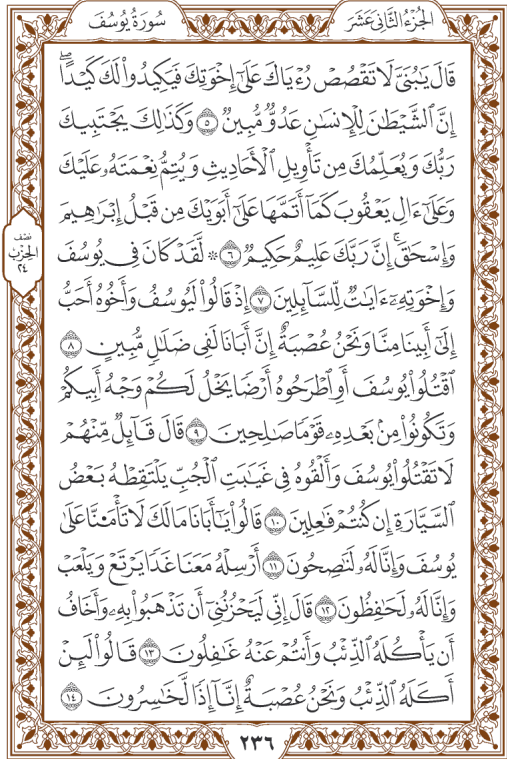 الجُزْءُ الثَّانِي عَشَرَ
سُورَةُ يُوسُفَ
قَالَ يَٰبُنَيَّ لَا تَقْصُصْ رُءْيَاكَ عَلَىٰٓ إِخْوَتِكَ فَيَكِيدُوا۟ لَكَ كَيْدًا ۖ
إِنَّ ٱلشَّيْطَٰنَ لِلْإِنسَٰنِ عَدُوٌّ مُّبِينٌ ٥ وَكَذَٰلِكَ يَجْتَبِيكَ
رَبُّكَ وَيُعَلِّمُكَ مِن تَأْوِيلِ ٱلْأَحَادِيثِ وَيُتِمُّ نِعْمَتَهُۥ عَلَيْكَ
وَعَلَىٰٓ ءَالِ يَعْقُوبَ كَمَآ أَتَمَّهَا عَلَىٰٓ أَبَوَيْكَ مِن قَبْلُ إِبْرَٰهِيمَ
وَإِسْحَٰقَ ۚ إِنَّ رَبَّكَ عَلِيمٌ حَكِيمٌ ٦ ۞ لَّقَدْ كَانَ فِى يُوسُفَ
وَإِخْوَتِهِۦٓ ءَايَٰتٌ لِّلسَّآئِلِينَ ٧ إِذْ قَالُوا۟ لَيُوسُفُ وَأَخُوهُ أَحَبُّ
إِلَىٰٓ أَبِينَا مِنَّا وَنَحْنُ عُصْبَةٌ إِنَّ أَبَانَا لَفِى ضَلَٰلٍ مُّبِينٍ ٨
ٱقْتُلُوا۟ يُوسُفَ أَوِ ٱطْرَحُوهُ أَرْضًا يَخْلُ لَكُمْ وَجْهُ أَبِيكُمْ
وَتَكُونُوا۟ مِنۢ بَعْدِهِۦ قَوْمًا صَٰلِحِينَ ٩ قَالَ قَآئِلٌ مِّنْهُمْ
لَا تَقْتُلُوا۟ يُوسُفَ وَأَلْقُوهُ فِى غَيَٰبَتِ ٱلْجُبِّ يَلْتَقِطْهُ بَعْضُ
ٱلسَّيَّارَةِ إِن كُنتُمْ فَٰعِلِينَ ١٠ قَالُوا۟ يَٰٓأَبَانَا مَا لَكَ لَا تَأْمَ۫نَّا عَلَىٰ
يُوسُفَ وَإِنَّا لَهُۥ لَنَٰصِحُونَ ١١ أَرْسِلْهُ مَعَنَا غَدًا يَرْتَعْ وَيَلْعَبْ
وَإِنَّا لَهُۥ لَحَٰفِظُونَ ١٢ قَالَ إِنِّى لَيَحْزُنُنِىٓ أَن تَذْهَبُوا۟ بِهِۦ وَأَخَافُ
أَن يَأْكُلَهُ ٱلذِّئْبُ وَأَنتُمْ عَنْهُ غَٰفِلُونَ ١٣ قَالُوا۟ لَئِنْ
أَكَلَهُ ٱلذِّئْبُ وَنَحْنُ عُصْبَةٌ إِنَّآ إِذًا لَّخَٰسِرُونَ ١٤
نِصْف
الحِزْب
٢٤
٢٣٦